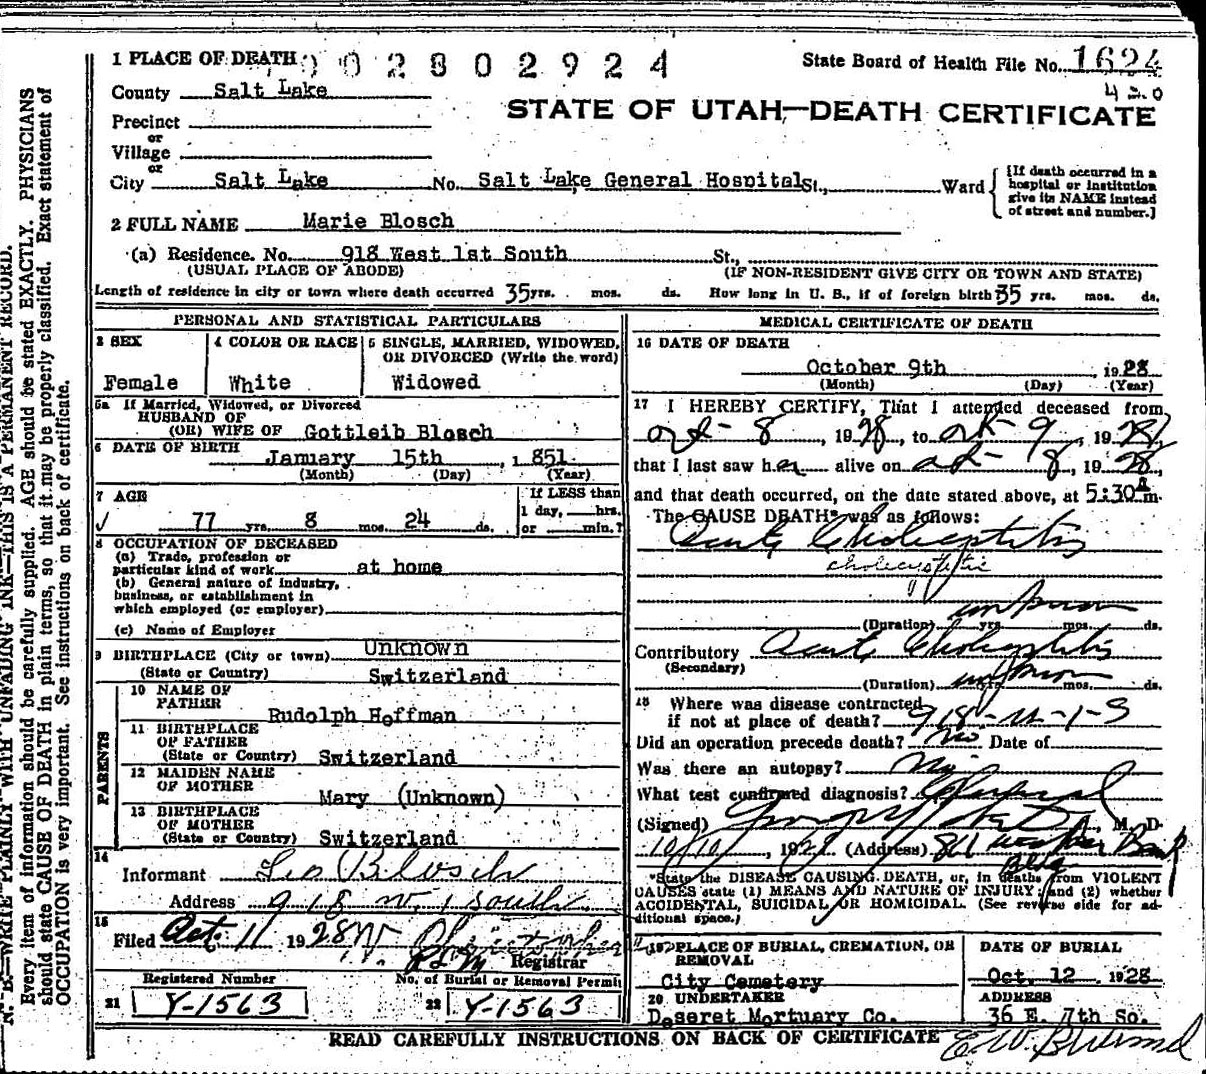 1 PLACE OF DEATH 002802924
State Board of Health File No. 1624
430
County Salt Lake
STATE OF UTAH—DEATH CERTIFICATE
Precinct
or
Village
or
City Salt Lake No. Salt Lake General Hospital St., Ward
[If death occurred in a
hospital or institution
give its NAME instead
of street and number.]
2 FULL NAME Marie Blosch
(a) Residence. No. 918 West 1st South St.,
(USUAL PLACE OF ABODE) (IF NON-RESIDENT GIVE CITY OR TOWN AND STATE)
Length of residence in city or town where death occurred 35 yrs. mos. ds. How long in U. S., if of foreign birth 35 yrs. mos. ds.
PERSONAL AND STATISTICAL PARTICULARS
3 SEX
Female
4 COLOR OR RACE
White
5 SINGLE, MARRIED, WIDOWED,
OR DIVORCED (Write the word)
Widowed
5a If Married, Widowed, or Divorced
HUSBAND OF
(OR) WIFE OF Gottleib Blosch
6 DATE OF BIRTH
January 15th, 1851
(Month) (Day) (Year)
7 AGE
77 yrs. 8 mos. 24 ds.
If LESS than
1 day, hrs.
or min.?
8 OCCUPATION OF DECEASED
(a) Trade, profession or
particular kind of work at home
(b) General nature of industry,
business, or establishment in
which employed (or employer)
(c) Name of Employer
9 BIRTHPLACE (City or town) Unknown
(State or Country) Switzerland
PARENTS
10 NAME OF
FATHER
Rudolph Hoffman
11 BIRTHPLACE
OF FATHER
(State or Country) Switzerland
12 MAIDEN NAME
OF MOTHER
Mary (Unknown)
13 BIRTHPLACE
OF MOTHER
(State or Country) Switzerland
14
Informant Leo Blosch
Address 918 W. 1 South
15
Filed Oct. 11 1928
Registrar
Registered Number
21 Y-1563
No. of Burial or Removal Permit
22 Y-1563
MEDICAL CERTIFICATE OF DEATH
16 DATE OF DEATH
October 9th, 1928
(Month) (Day) (Year)
17 I HEREBY CERTIFY, That I attended deceased from
Oct-8, 1928, to Oct-9, 1928,
that I last saw her alive on Oct-8, 1928,
and that death occurred, on the date stated above, at 5:30 A m.
The CAUSE DEATH* was as follows:
Acute Cholecystitis
(Duration) unknown yrs. mos. ds.
Contributory Acute Cholecystitis
(Secondary)
(Duration) unknown yrs. mos. ds.
18 Where was disease contracted
if not at place of death? 918-W-1-S
Did an operation precede death? No Date of
Was there an autopsy? No
What test confirmed diagnosis?
(Signed) M. D.
10/10, 192 (Address)
*State the DISEASE CAUSING DEATH, or, in deaths from VIOLENT
CAUSES state (1) MEANS AND NATURE OF INJURY; and (2) whether
ACCIDENTAL, SUICIDAL OR HOMICIDAL. (See reverse side for ad-
ditional space.)
19 PLACE OF BURIAL, CREMATION, OR
REMOVAL
City Cemetery
DATE OF BURIAL
Oct. 12 1928
20 UNDERTAKER
Deseret Mortuary Co.
ADDRESS
36 E. 7th So.
READ CAREFULLY INSTRUCTIONS ON BACK OF CERTIFICATE
N. B.—WRITE PLAINLY WITH UNFADING INK—THIS IS A PERMANENT RECORD.
Every item of information should be carefully supplied. AGE should be stated EXACTLY. PHYSICIANS
should state CAUSE OF DEATH in plain terms, so that it may be properly classified. Exact statement of
OCCUPATION is very important. See instructions on back of certificate.